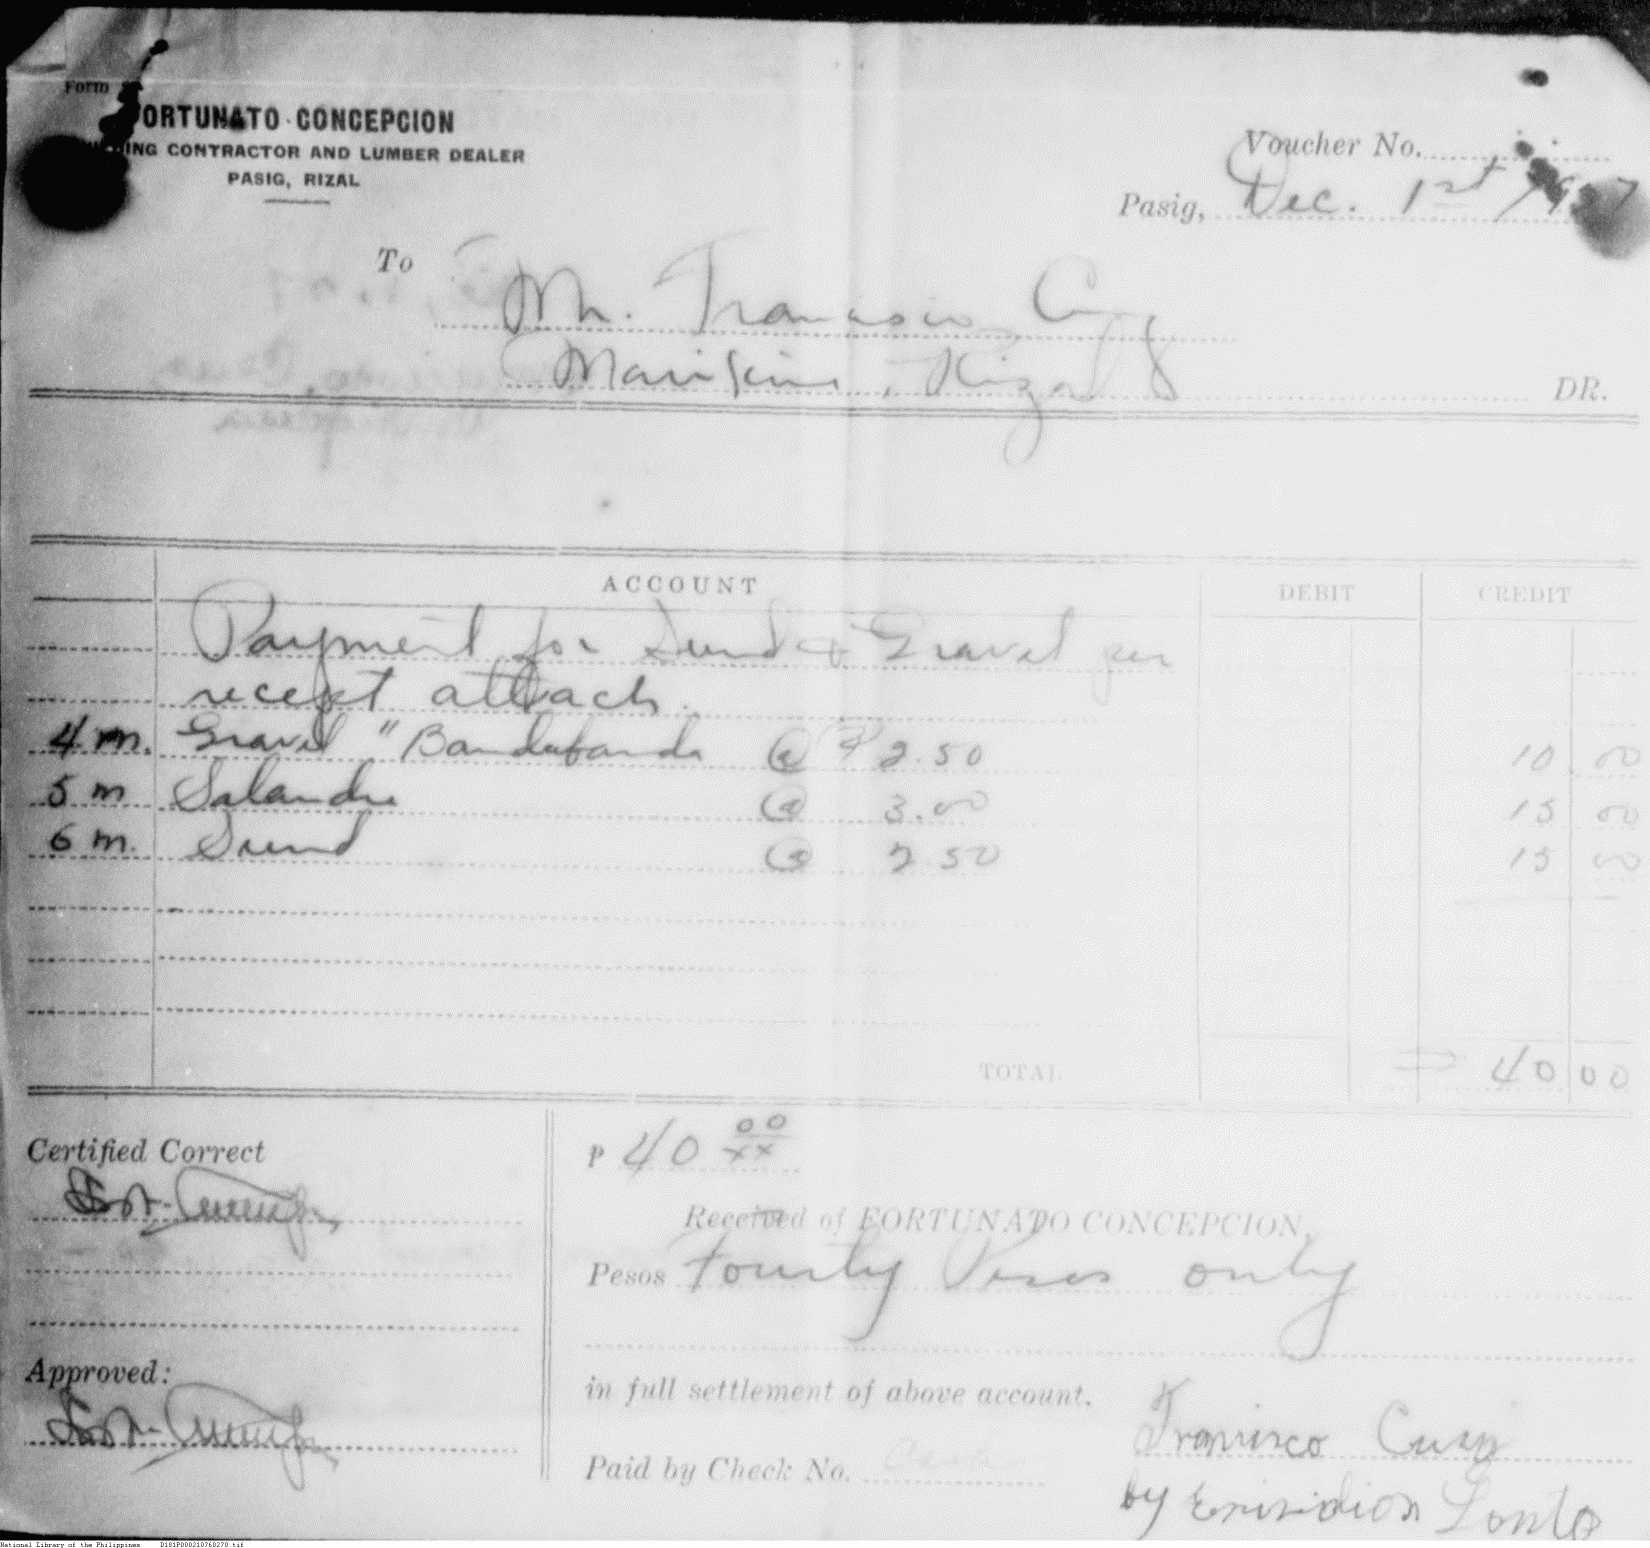 Form
FORTUNATO CONCEPCION
BUILDING CONTRACTOR AND LUMBER DEALER
PASIG, RIZAL
Voucher No.
Pasig, Dec. 1st 1937
To
Mr. Francisco
Marikina, Rizal
DR.
ACCOUNT DEBIT CREDIT
Payment for Sand & Gravel per
receipt attach.
4 m. Gravel "Bandabanda @ ₱ 2.50 10 00
5 m Salandra @ 3.00 15 00
6 m. Sand @ 2.50 15 00
TOTAL = 40 00
Certified Correct
₱ 40 00/xx
Received of FORTUNATO CONCEPCION,
Pesos Fourty Pesos only
Approved:
in full settlement of above account.
Paid by Check No.
Francisco
by
National Library of the Philippines D181P000210760270.tif